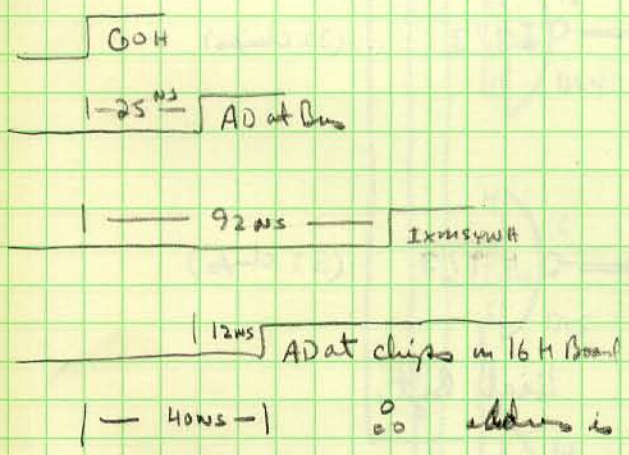 GOH
25 NS AD at Bus
92 NS
12NS AD at chips on 16 H Board
40NS ∴ address is